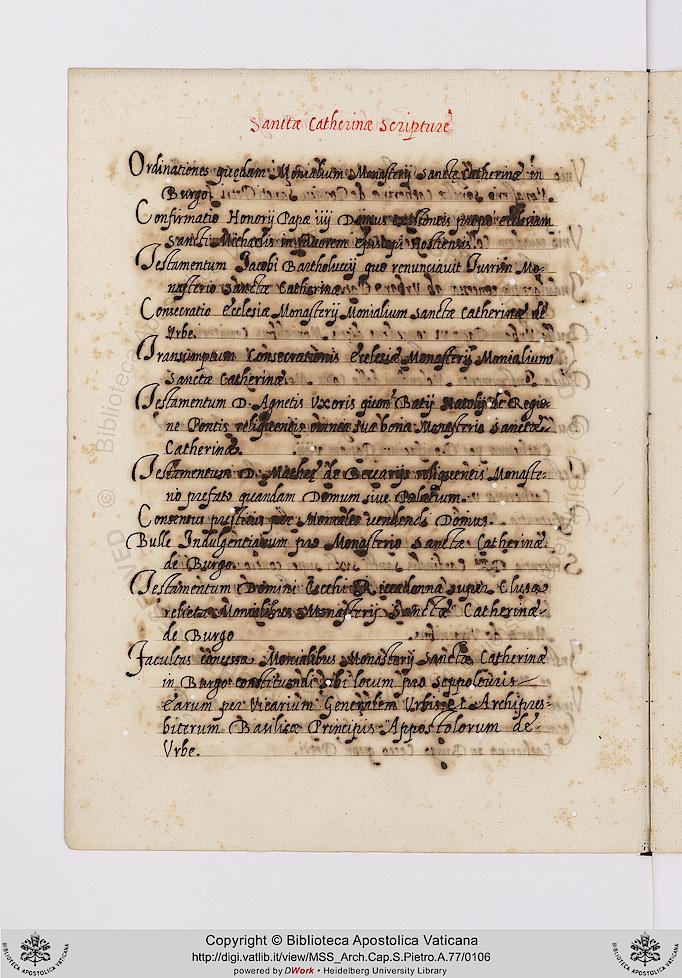 Sanctæ Catherinæ Scripturę
Ordinationes quędam Monialium Monasterij Sanctæ Catherinæ in
Burgo.
Confirmatio Honorij Papæ iiij Domus existentis prope ecclesiam
Sancti Michaelis in favorem episcopi Hostiensis.
Testamentum Jacobi Bartholuccij quo renunciavit Jurium Mo-
nasterio Sanctæ Catherinæ
Consecratio Ecclesiæ Monasterij Monialium Sanctæ Catherinæ de
Vrbe.
Transumptum Consecrationis Ecclesiæ Monasterij Monialium
Sanctæ Catherinæ
Testamentum D. Agnetis Vxoris Batij de Regio-
ne Pontis relinquentis omnia sua bona Monasterio Sanctæ
Catherinæ.
Testamentum D. de Beccarijs relinquentis Monaste-
rio prefato quandam Domum sive Palatium.
Consensus Moniales vendendi Domus.
Bulle Indulgentiarum pro Monasterio Sanctæ Catherinæ
de Burgo.
Testamentum Domini Cecchi super
relicta Monialibus Monasterij Sanctæ Catherinæ
de Burgo
Facultas concessa Monialibus Monasterij Sanctæ Catherinæ
in Burgo constituendi sibi locum pro seppolturis
Earum per Vicarium Generalem Vrbis et Archipres-
biterum Basilicæ Principis Appostolorum de
Vrbe.
Copyright © Biblioteca Apostolica Vaticana
http://digi.vatlib.it/view/MSS_Arch.Cap.S.Pietro.A.77/0106
powered by DWork • Heidelberg University Library